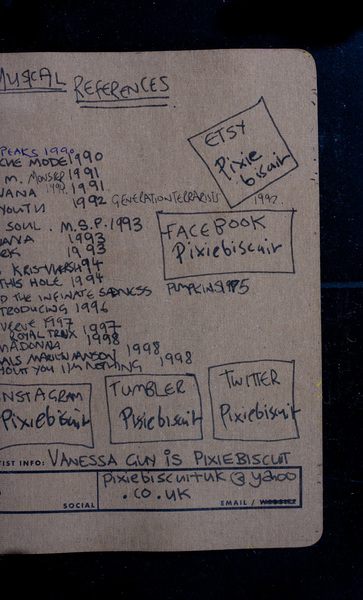 MUSICAL REFERENCES
PEAKS 1990
CHE MODE 1990
M. MONSTER 1991
VANA 1991
YOUTH 1992 GENERATION TERRORISTS 1992
SOUL. M.S.P. 1993
ANA 1993
1993
KRISTIN HERSH 94
THIS HOLE 1994
D THE INFINATE SADNESS PUMPKINS 1995
TRODUCING 1996
VERVE 1997
ROYAL TRUX 1997
MADONNA 1998
MALS MARILYN MANSON 1998
HOUT YOU I'M NOTHING 1998
ETSY
Pixie
biscuit
FACEBOOK
Pixiebiscuit
INSTAGRAM
Pixiebiscuit
TUMBLER
Pixiebiscuit
TWITTER
Pixiebiscuit
TIST INFO: VANESSA GUY IS PIXIEBISCUIT
pixiebiscuituk@yahoo
.co.uk
SOCIAL
EMAIL / WEBSITE